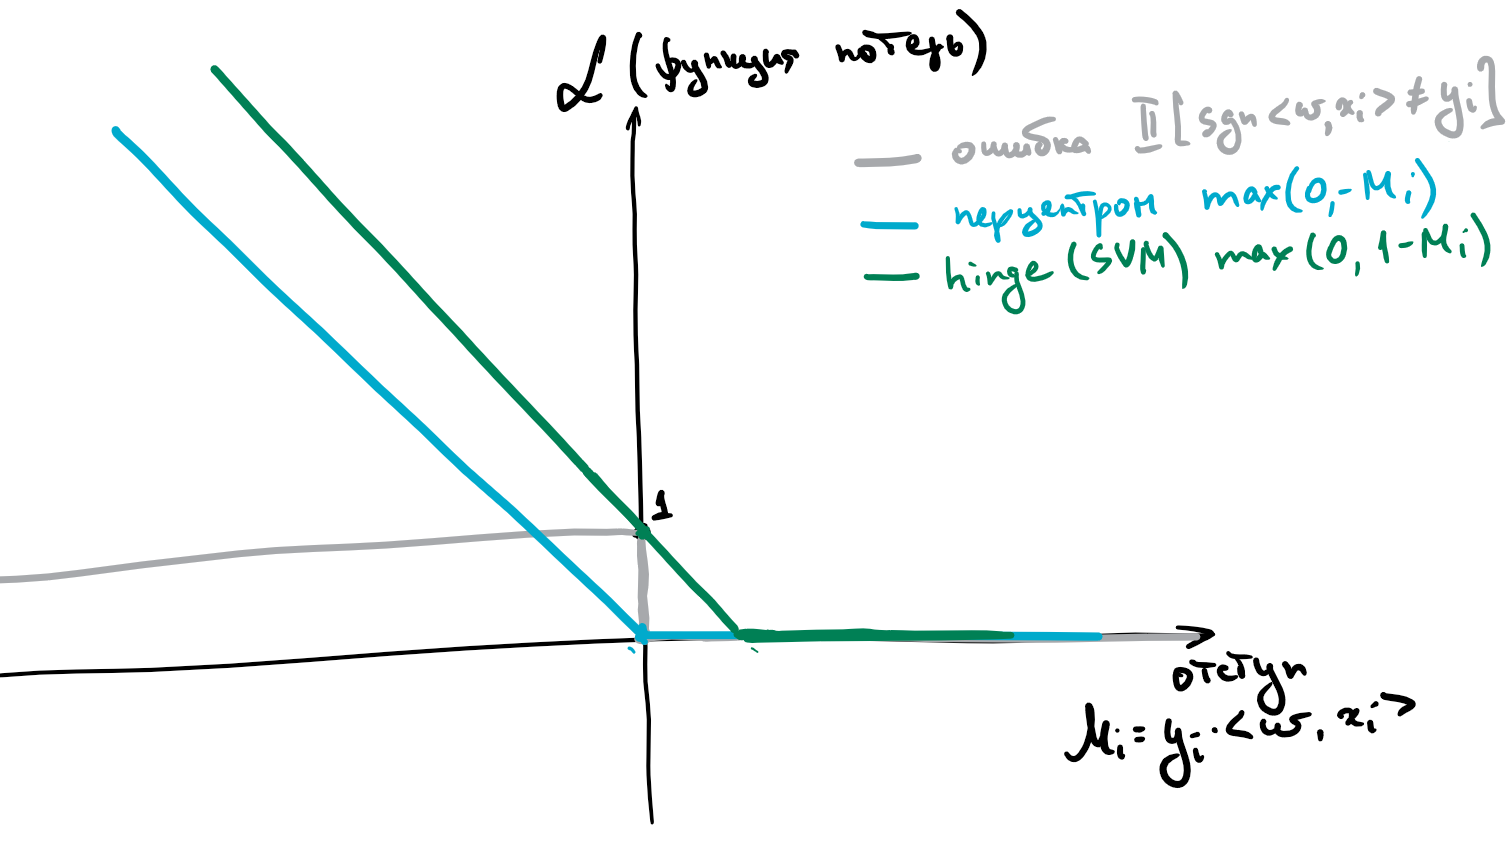 ℒ (функция потерь)
ошибка 𝕀[sgn<w, xᵢ> ≠ yᵢ]
перцептром max(0,-Mᵢ)
hinge (SVM) max(0, 1-Mᵢ)
1
отступ
Mᵢ = yᵢ·<w, xᵢ>